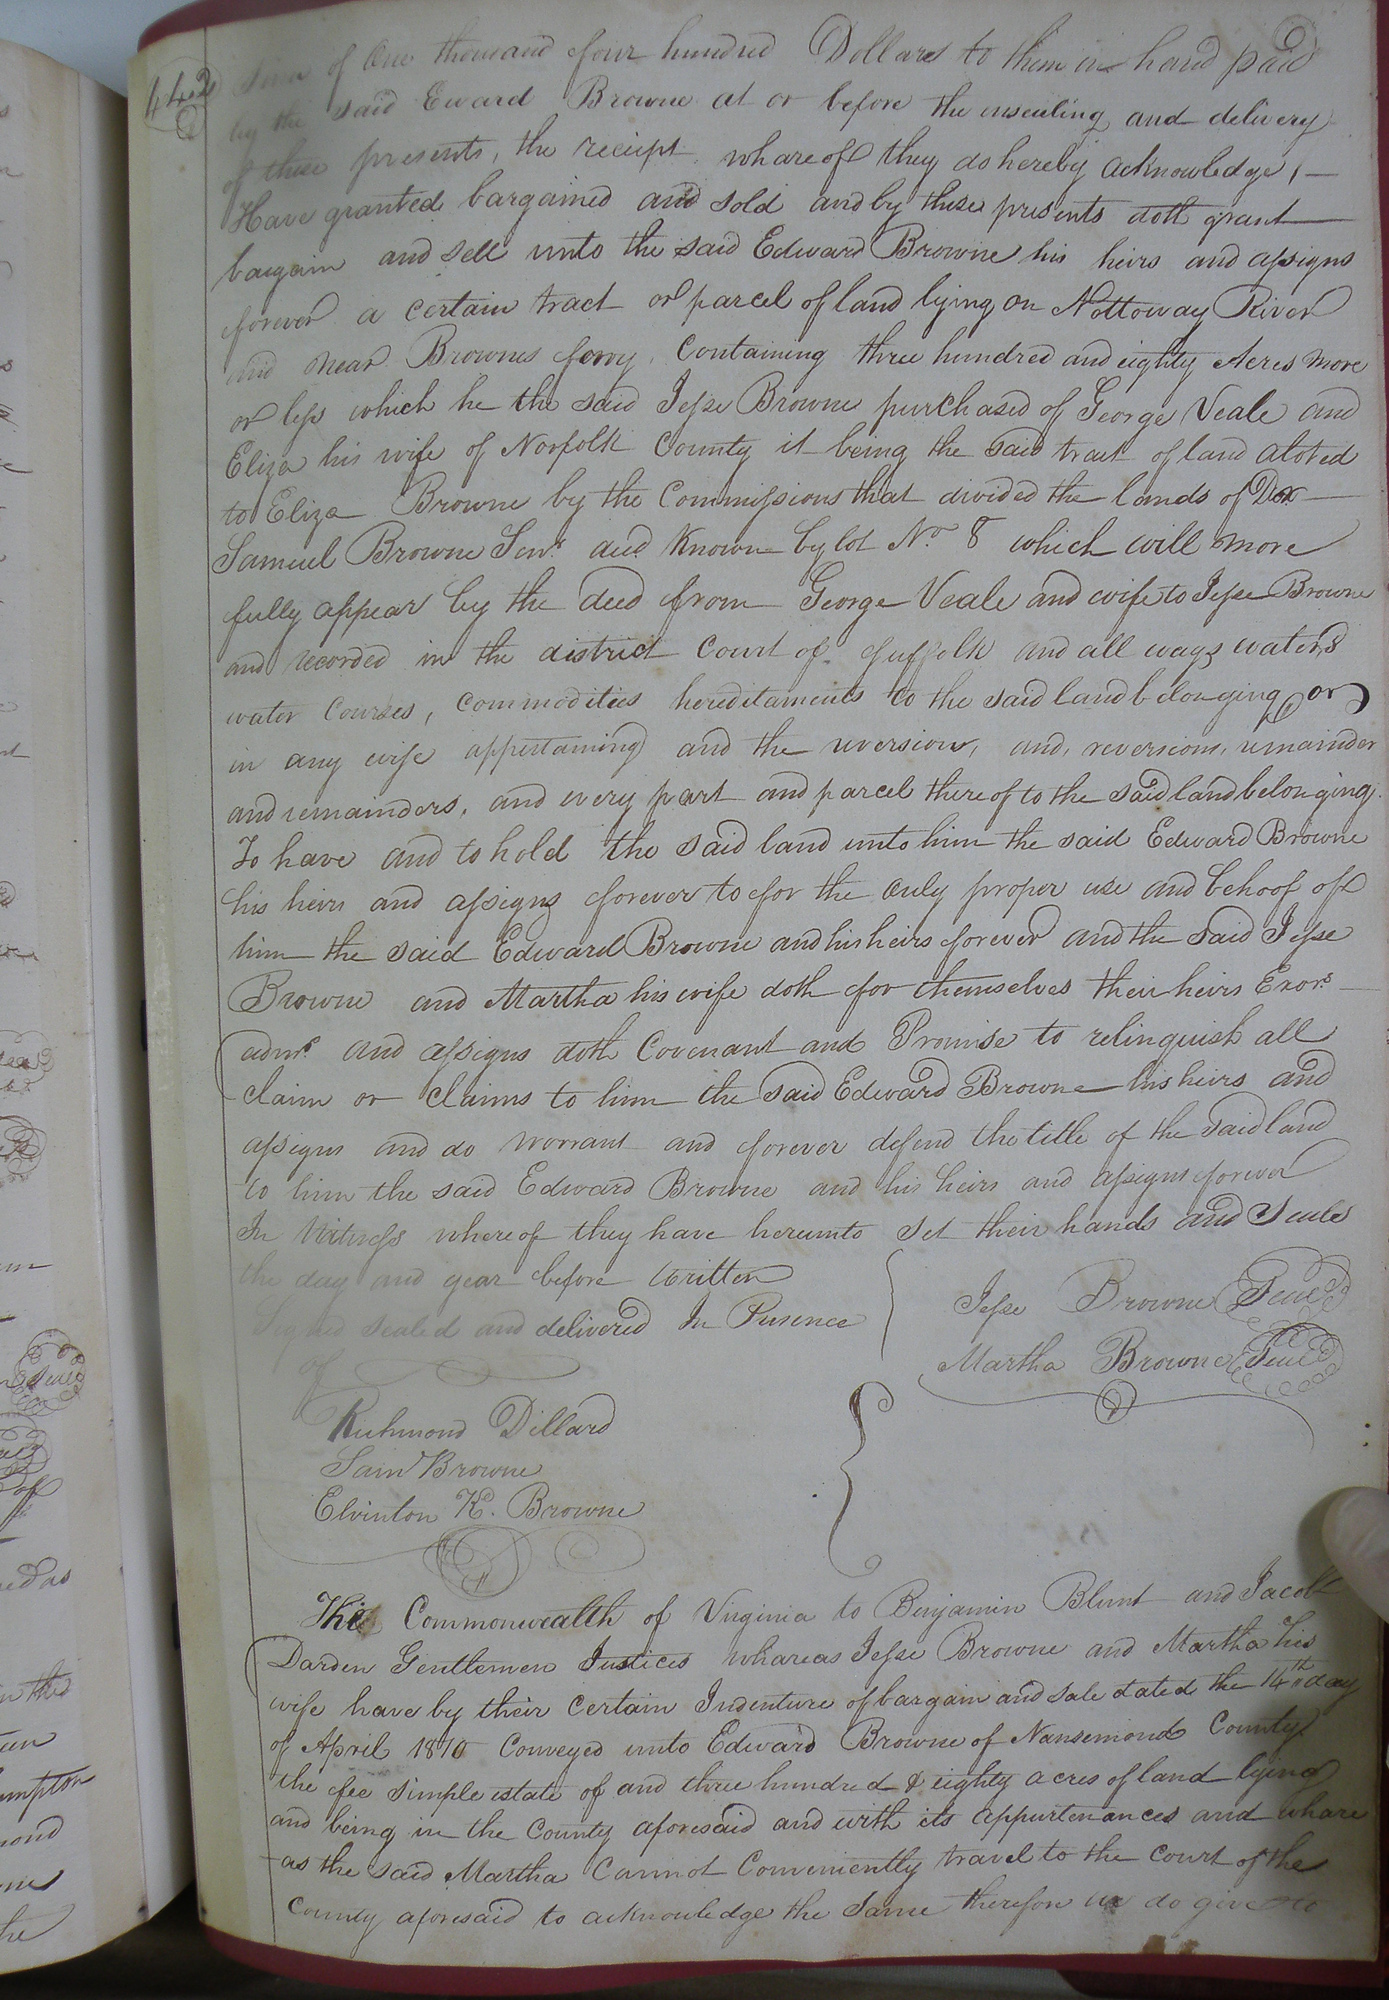 442
Sum of One thousand four hundred Dollars to them in hand paid
by the said Eward Browne at or before the ensealing and delivery
of these presents, the reciept whareof they do hereby acknowledge, —
Have granted bargained and sold and by these presents doth grant
bargain and sell unto the said Edward Browne his heirs and assigns
forever a certain tract or parcel of land lying on Nottoway River
and near Brownes ferry, Containing three hundred and eighty Acres more
or less which he the said Jesse Browne purchased of George Veale and
Eliza his wife of Norfolk County it being the said tract of land aloted
to Eliza Browne by the Commissions that divided the lands of Docr
Samuel Browne Senr. and Known by lot No. 8 which will more
fully appear by the deed from George Veale and wife to Jesse Browne
and recorded in the district Court of Suffolk and all ways waters
water Courses, commodities hereditaments to the said land belonging or
in any wise appertaining and the reversion, and, reversions, remainder
and remainders, and every part and parcel there of to the said land belonging.
To have and to hold the said land unto him the said Edward Browne
his heirs and assigns forever to for the only proper use and behoof of
him the said Edward Browne and his heirs forever and the said Jesse
Browne and Martha his wife doth for themselves their heirs Exors. —
admrs. and assigns doth Covenant and Promise to relinquish all
claim or claims to him the said Edward Browne his heirs and
assigns and do warrant and forever defend the title of the said land
to him the said Edward Browne and his heirs and assigns forever
In Witness whereof they have hereunto set their hands and Seals
the day and year before written
Signed sealed and delivered In Presence
of
Jesse Browne Seal
Martha Browne Seal
Richmond Dillard
Saml Browne
Elvinton K. Browne
The Commonwealth of Virginia to Benjamin Blunt and Jacob
Darden Gentlemen Justices whareas Jesse Browne and Martha his
wife have by their certain Indenture of bargain and sale dated the 14th day
of April 1810 Conveyed unto Edward Browne of Nansemond County
the fee simple estate of and three hundred & eighty acres of land lying
and being in the County aforesaid and with its appurtenances and whare
as the said Martha Cannot Conveniently travel to the court of the
County aforesaid to acknowledge the same therefore we do give to